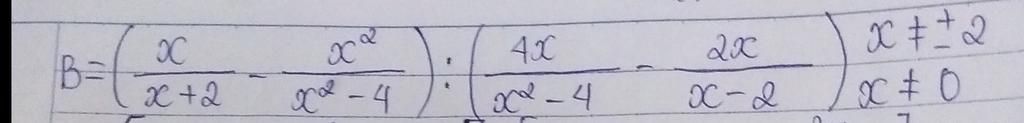 B = (x/(x+2) - x²/(x²-4)) : (4x/(x²-4) - 2x/(x-2)) x ≠ ±2
x ≠ 0